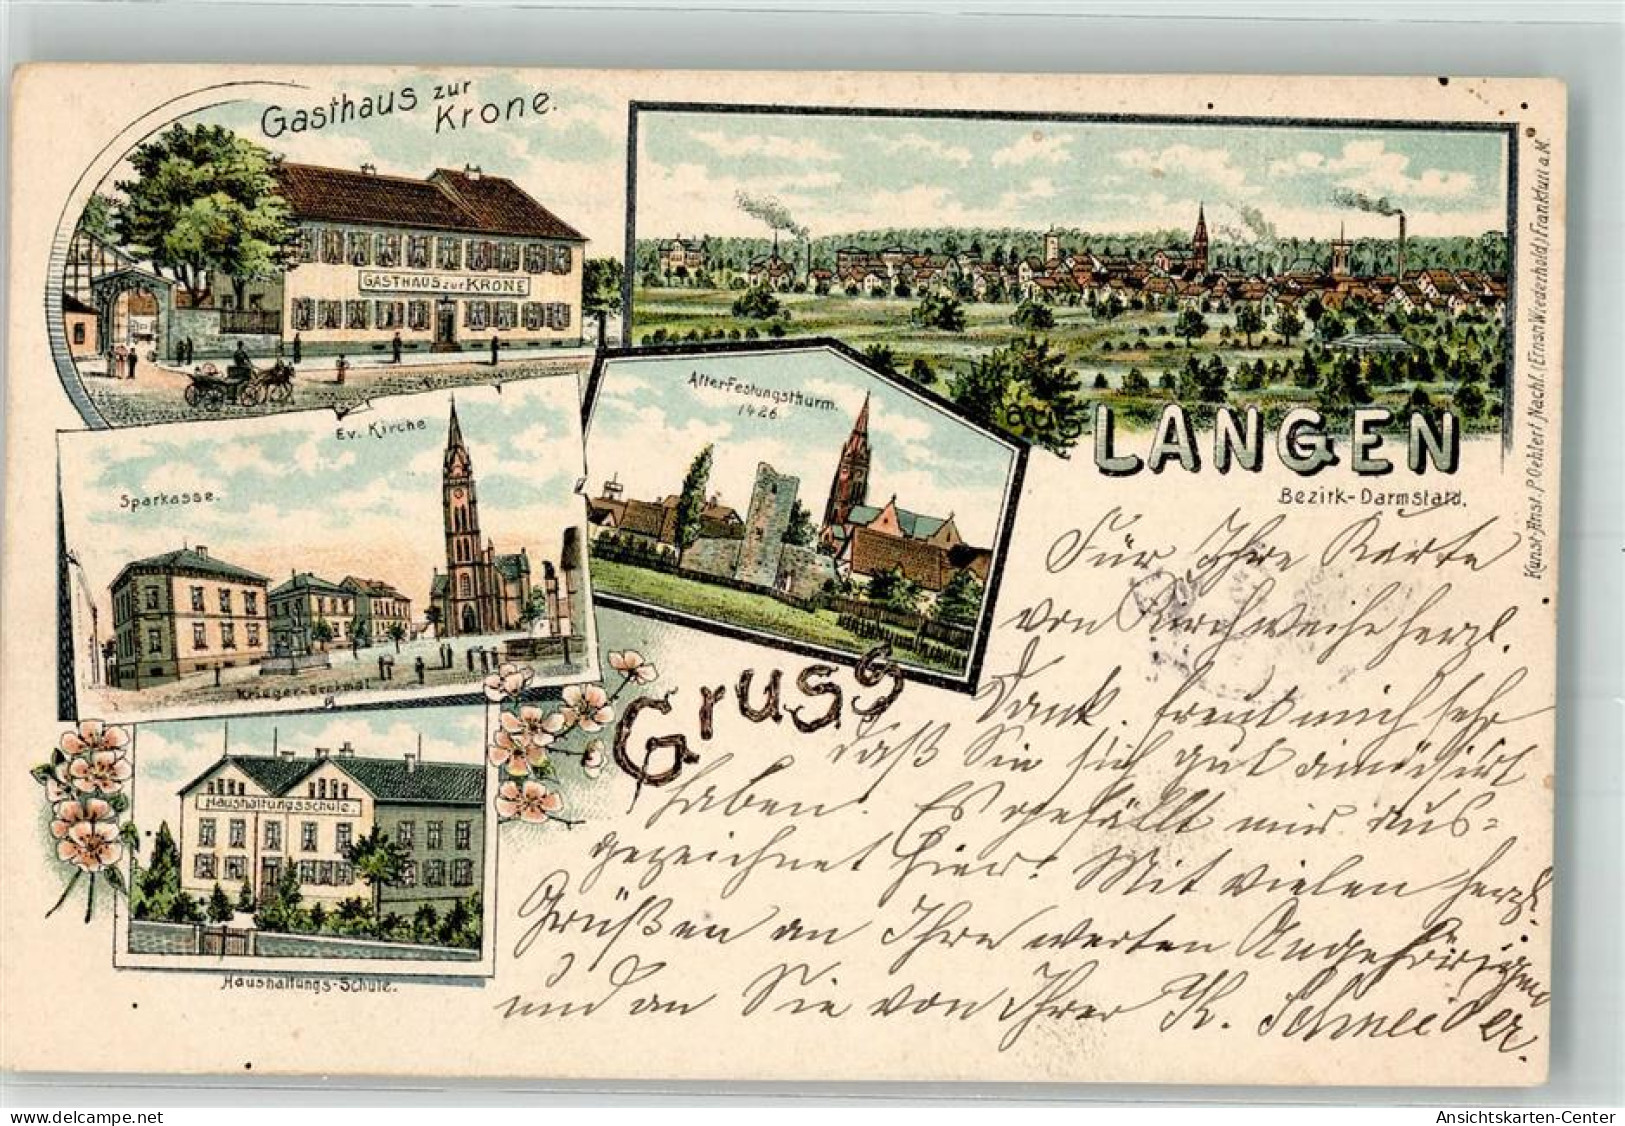 Gasthaus zur
Krone.
GASTHAUS zur KRONE
Ev. Kirche
Sparkasse.
Krieger-Denkmal
Alter Festungsthurm.
1426.
Haushaltungsschule.
Haushaltungs-Schule.
Gruss
aus LANGEN
Bezirk-Darmstatd.
Kunst-Anst. P. Oehlert Nachf. (Ernst Wiederhold) Frankfurt a. M.
Für Ihre Karte
von Kirchweihe herzl.
Dank. Freut mich sehr
daß Sie sich gut amüsirt
haben. Es gefällt mir aus-
gezeichnet hier! Mit vielen herzl.
Grüßen an Ihre werten Angehörigen
und an Sie von Ihrer K. Schneider.
delcampe.net
Ansichtskarten-Center